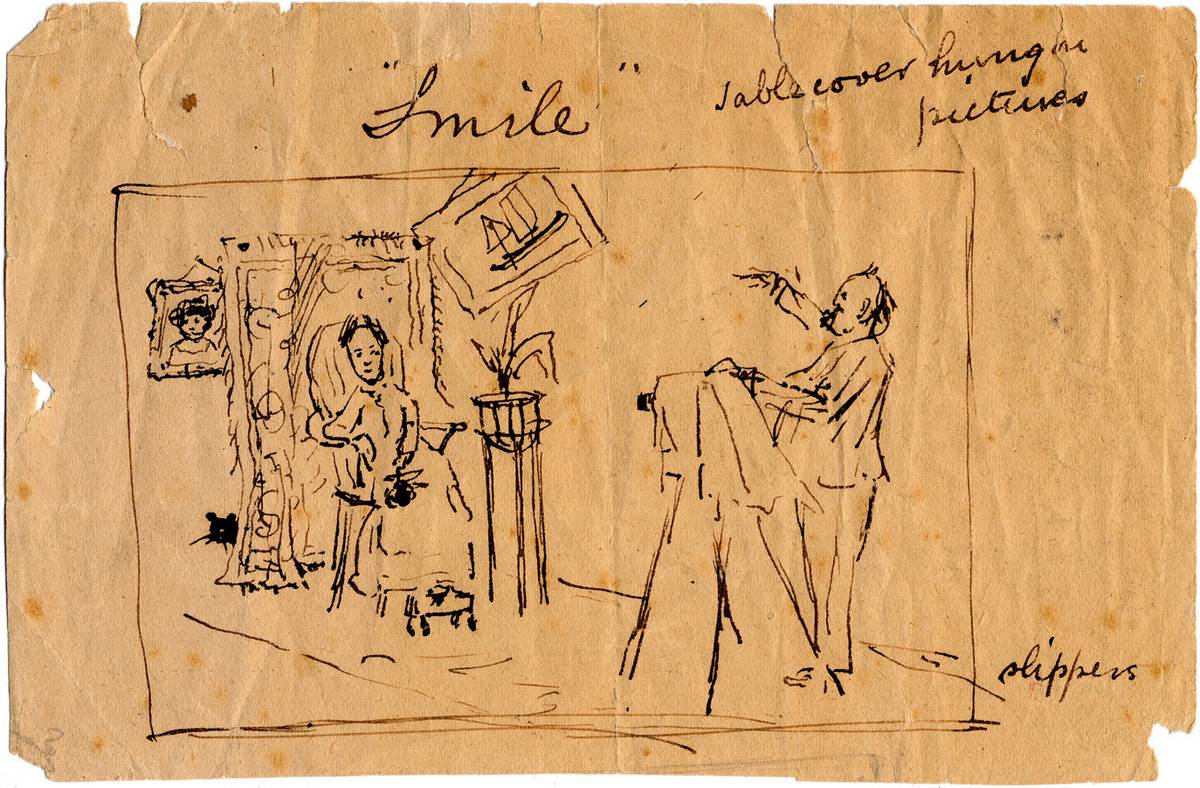 "Smile"
Tablecover hung on
pictures
slippers